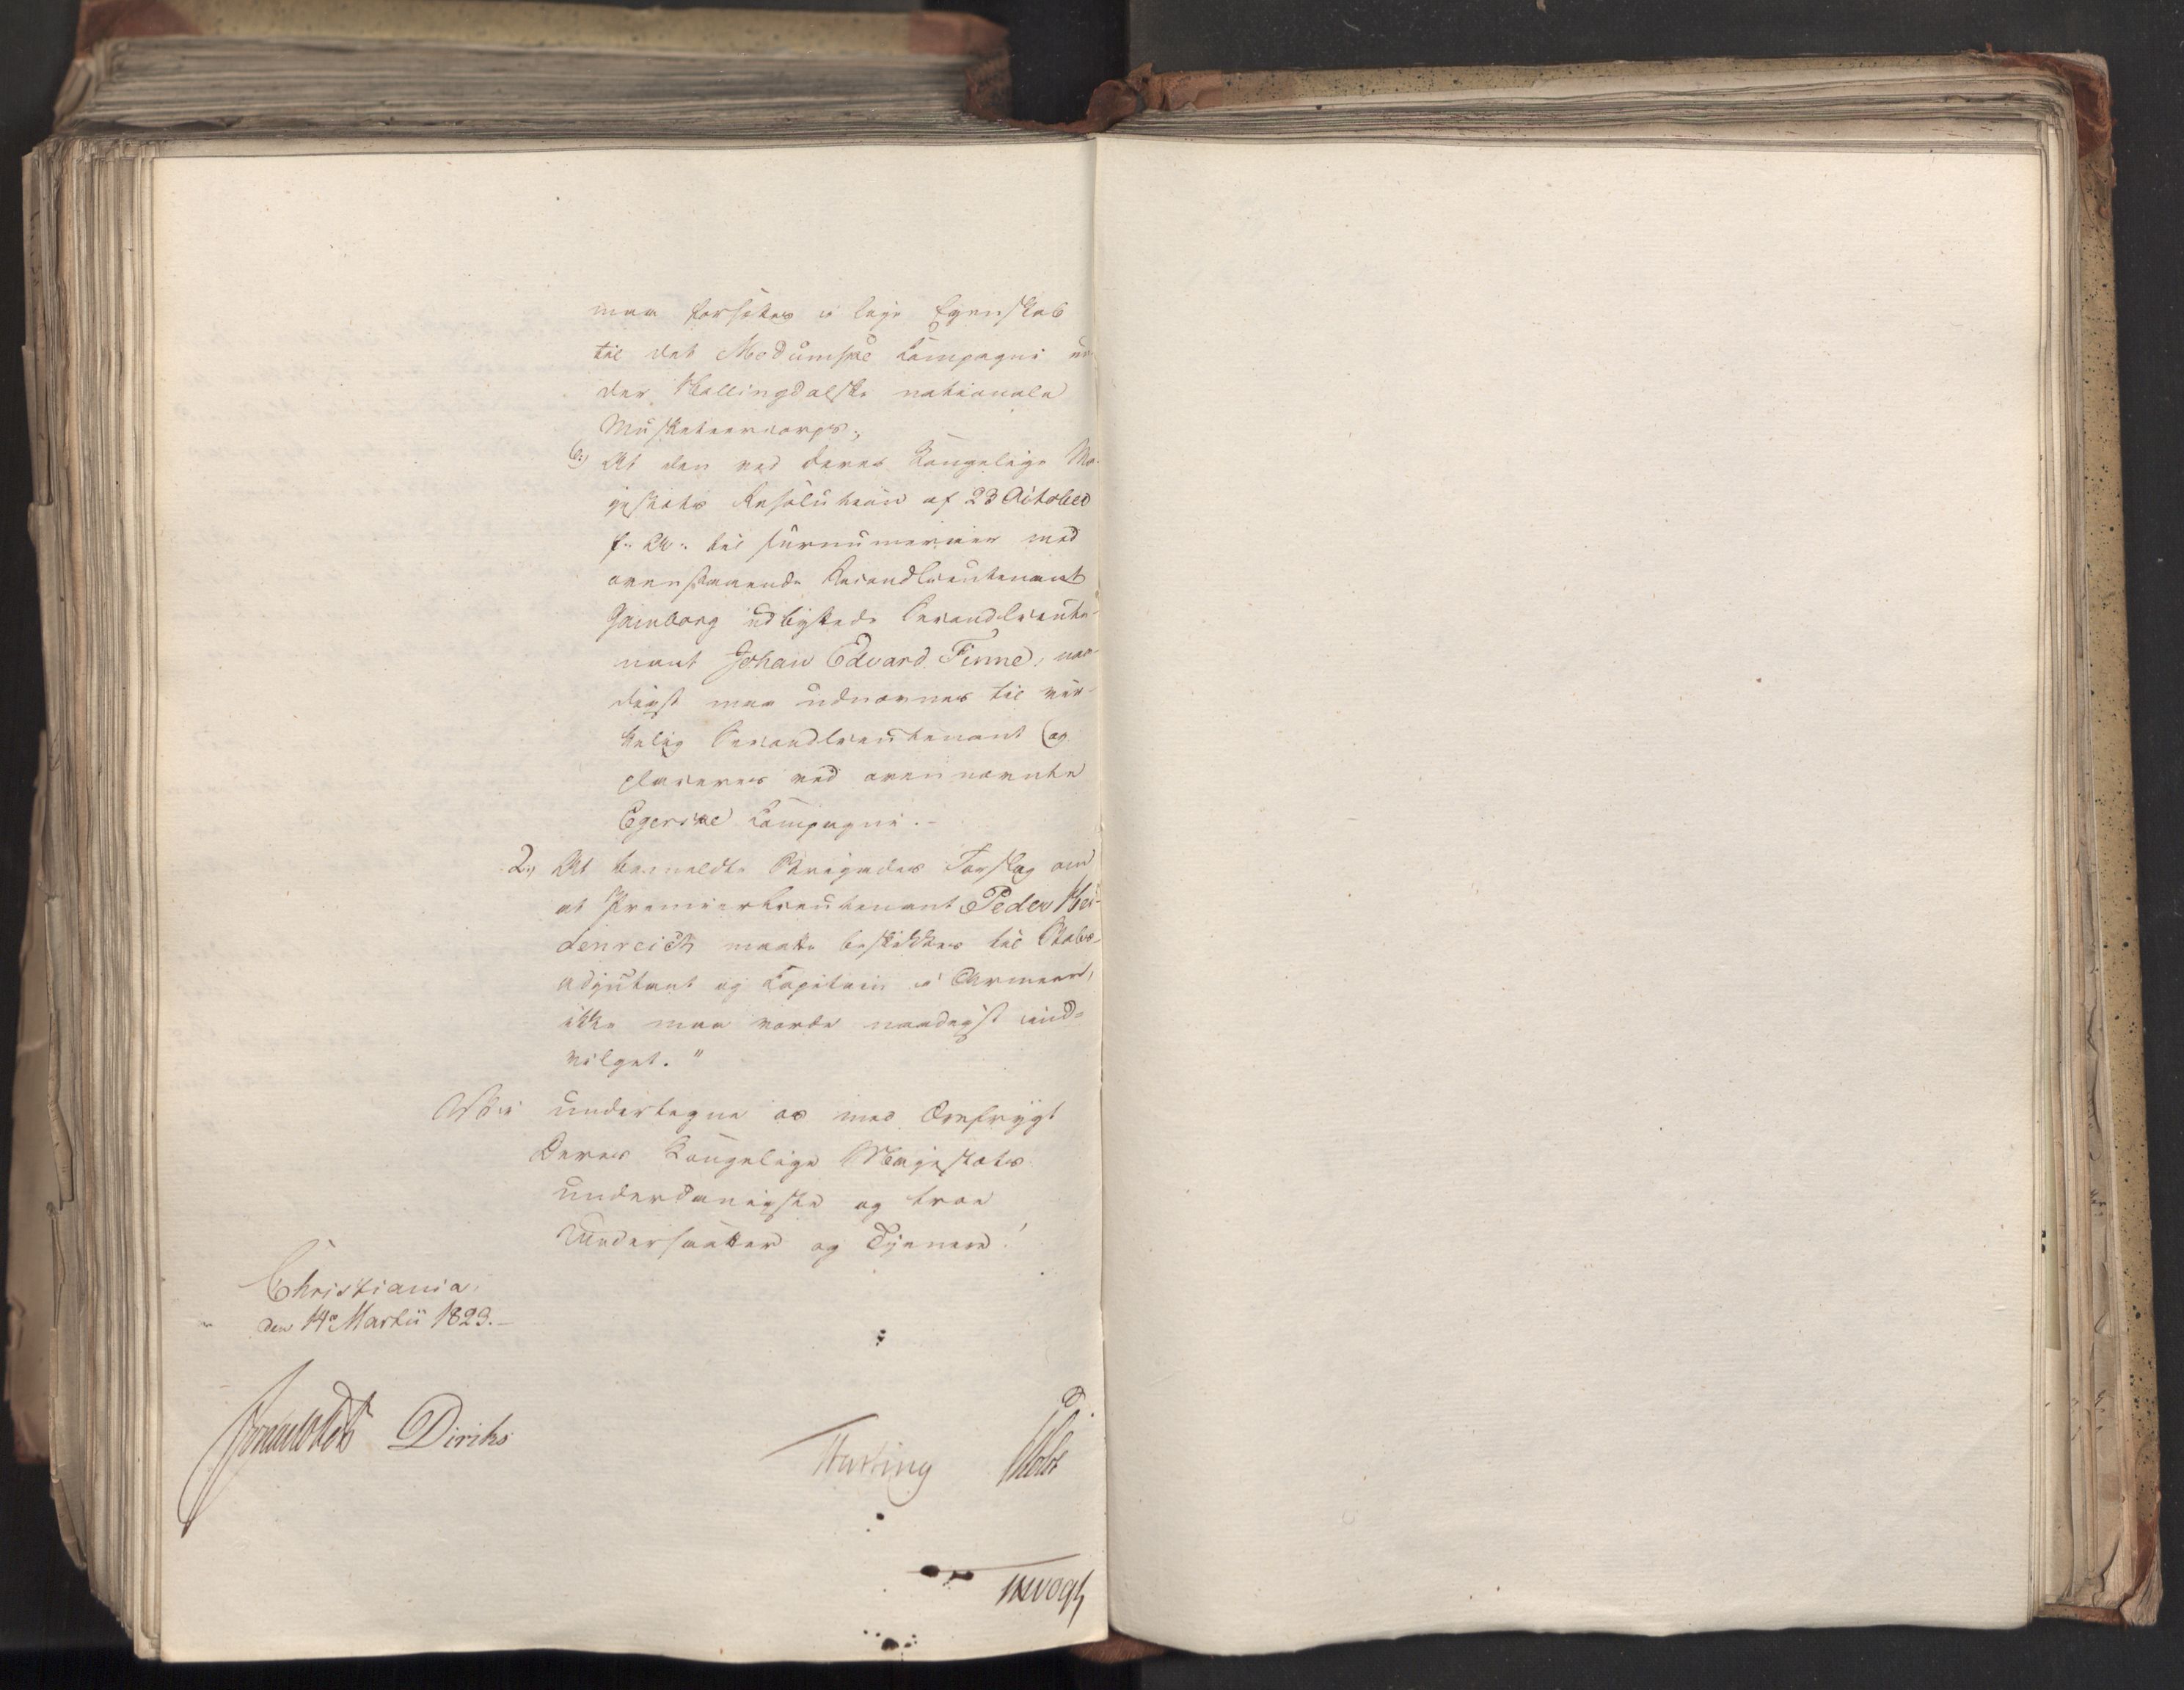 maa forsættes i lige Egenskab
til det Modumske Compagni un-
der Hallingdalske nationale
Musketeercorps.,
6.) At den ved Deres Kongelige Ma-
jestæts Resolution af 23 October
f: A: til surnumerair med
ovenstaaende Secondlieutenant
udbyttede Secondlieute-
nant Johan Edvard Finne, naa-
digst maa udnævnes til vir-
kelig Secondlieutenant og
placeres ved ovennævnte
Egerske Compagni.-
2., At bemeldte Brigades Forslag om
at Premierlieutenant Peder Hei-
denreich maatte beskikkes til Stabs-
adjutant og Capitain i Armeen,
ikke maa vorde naadigst ind-
vilget."
Vi undertegne os med Ærefrygt
Deres Kongelige Majestæts
underdanigste og troe
Undersaatter og Tjenere!
Christiania,
den 14de Martii 1823.-
Sommerhielm Diriks
Fasting Holst